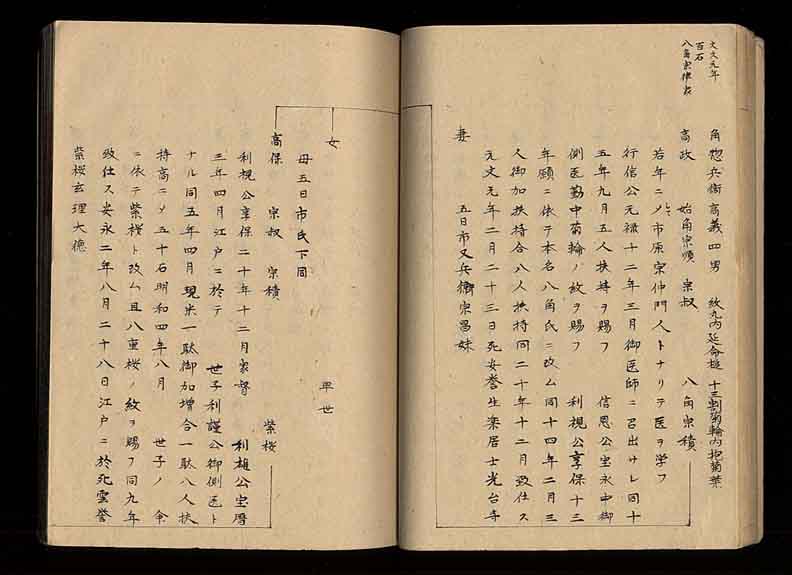 文久元年
百石
八角宗律家
角惣兵衛高義四男 紋丸内延命槌 十三割菊輪内抱菊葉
高政 始角宗順 宗叔 八角宗積
若年ニノ市原宗仲門人トナリテ医ヲ学フ
行信公元禄十二年三月御医師ニ召出サレ同十
五年九月五人扶持ヲ賜フ 信恩公宝永中御
側医勤中菊輪ノ紋ヲ賜フ 利視公享保十三
年願ニ依テ本名八角氏ニ改ム同十四年二月三
人御加扶持合八人扶持同二十年十二月致仕ス
元文元年二月二十三日死安誉生楽居士光台寺
妻 五日市又兵衛宗昌妹
女 早世
母五日市氏下同
高保 宗叔 宗積 紫桜
利視公享保二十年十二月家督 利雄公宝暦
三年四月江戸ニ於テ 世子利謹公御側医ト
ナル同五年四月現米一駄御加増合一駄八人扶
持高ニノ五十石明和四年八月 世子ノ命
ニ依テ紫桜ト改ム且八重桜ノ紋ヲ賜フ同九年
致仕ス安永二年八月二十八日江戸ニ於死雲誉
紫桜玄理大徳